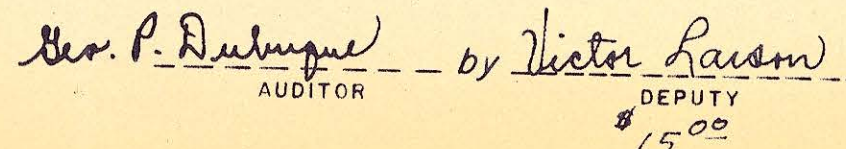 Geo. P. Dubuque by Victor Larson
AUDITOR DEPUTY
$15.00